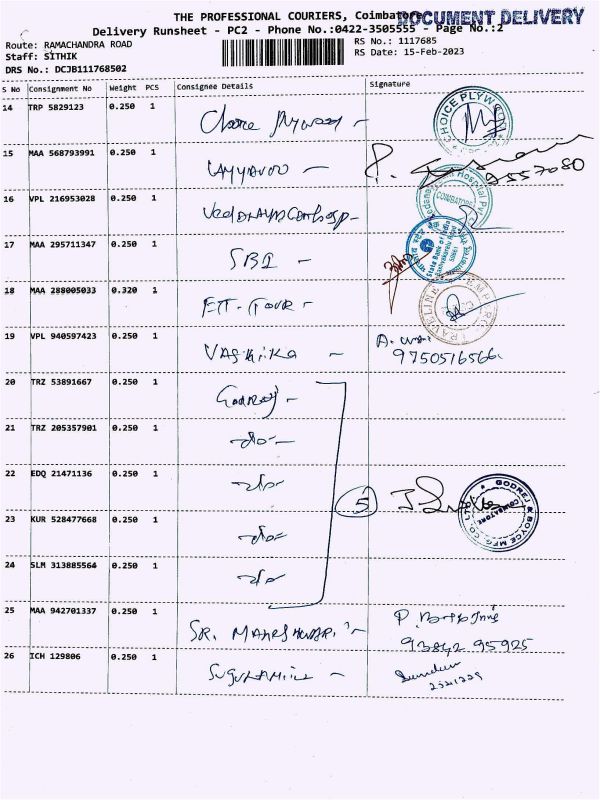 THE PROFESSIONAL COURIERS, Coimbatore
DOCUMENT DELIVERY
Delivery Runsheet - PC2 - Phone No.:0422-3505555 - Page No.:2
Route: RAMACHANDRA ROAD
RS No.: 1117685
Staff: SITHIK
RS Date: 15-Feb-2023
DRS No.: DCJB111768502
S No Consignment No Weight PCS Consignee Details Signature
14 TRP 5829123 0.250 1 Choice Plywood -
CHOICE PLYWO
15 MAA 568793991 0.250 1
16 VPL 216953028 0.250 1
Hospital Pvt
COIMBATORE
17 MAA 295711347 0.250 1 SBI -
State Bank of India
18 MAA 288005033 0.320 1
TRAVELINE EMPRO
19 VPL 940597423 0.250 1
9750516566
20 TRZ 53891667 0.250 1 Godrej -
21 TRZ 205357901 0.250 1 -do-
22 EDQ 21471136 0.250 1 -do-
5
GODREJ & BOYCE MFG. CO. LTD.
COIMBATORE
23 KUR 528477668 0.250 1 -do-
24 SLM 313885564 0.250 1 -do-
25 MAA 942701337 0.250 1 SR. MAHESHWARI -
93842 95925
26 ICH 129806 0.250 1